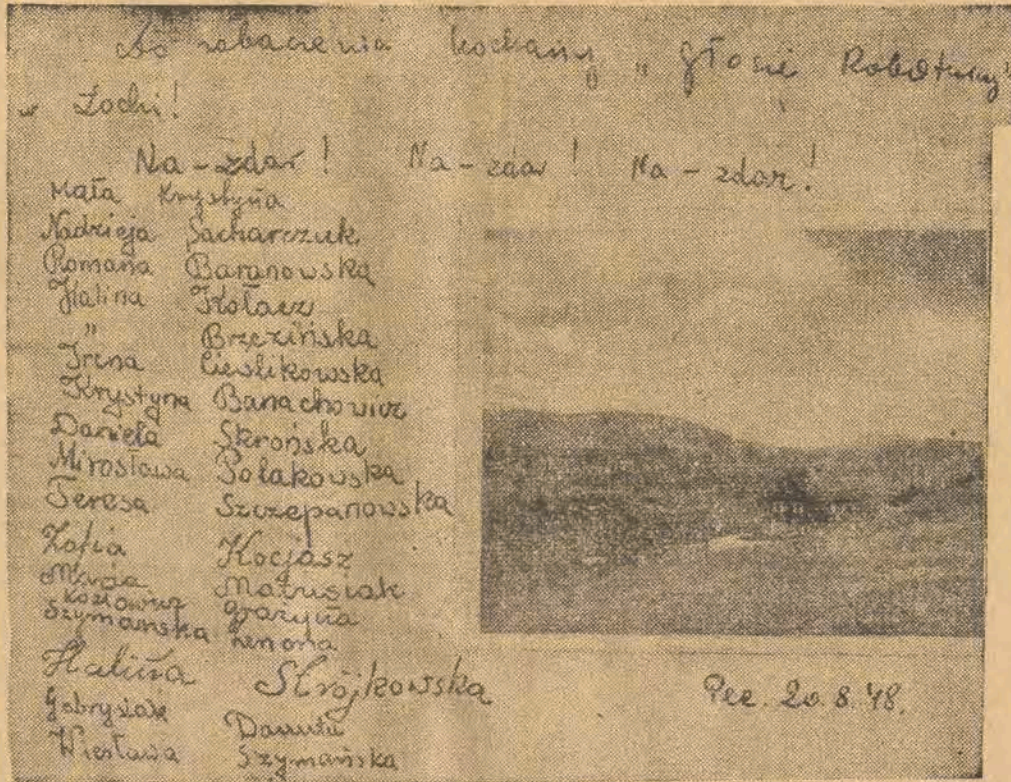 Do zobaczenia kochany „Głosie Robotniczy"
w Łodzi!
Na-zdar! Na-zdar! Na-zdar!
Mała Krystyna
Nadzieja Sacharczuk
Romana Baranowska
Halina Kołacz
" Brzezińska
Irena Cieślikowska
Krystyna Banachowicz
Daniela Skrońska
Mirosława Polakowska
Teresa Szczepanowska
Zofia Kocjasz
Maria Matusiak
Kozłowicz Grażyna
Szymańska Zenona
Halina Strójkowska
Pec. 20.8.48.
Gabrysiak Danuta
Wiesława Szymańska